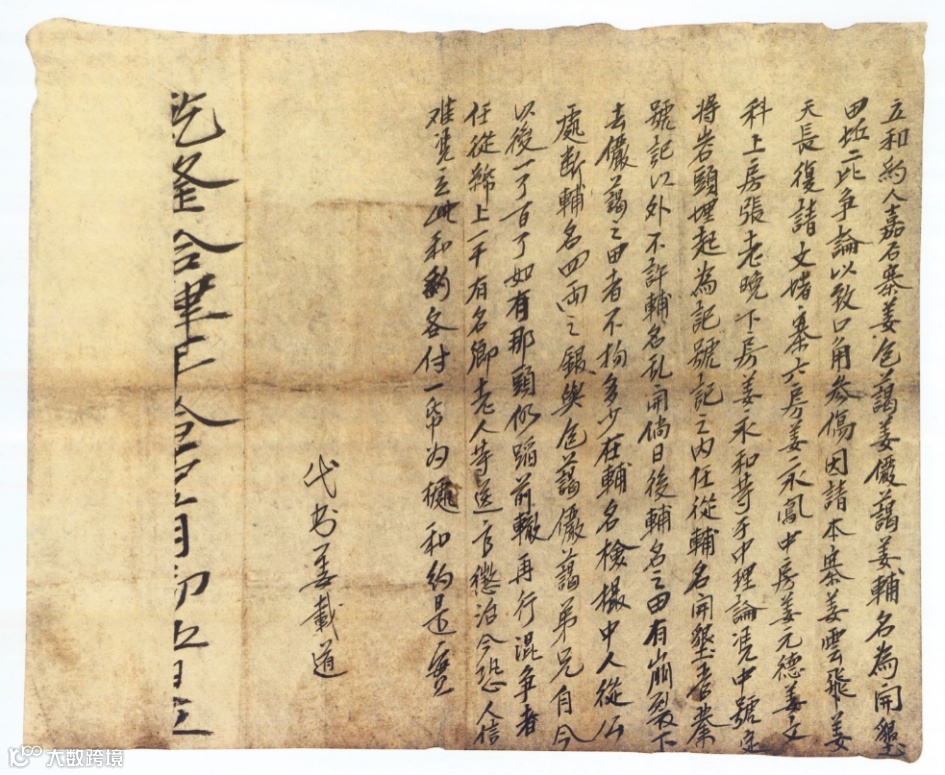 立和約人嘉石寨姜包藹姜儼藹姜輔名為開墾
田坵二比爭論以致口角參傷因請本寨姜雲飛姜
天長復請文堵寨六房姜永鳳中房姜元德姜文
科上房張老晚下房姜永和等手中理論凴中號定
將岩頭埋起為記號記之内任從輔名開墾
號記以外不許輔名乱開倘日後輔名之田有崩裂下
去儼藹之田者不拘多少在輔名檢橃中人從公
處断輔名四両之銀與包藹儼藹弟兄自今
以後一了百了如有那頭仍蹈前轍再行混争者
任從 上一千有名鄉老人等送官懲治今恐人信
难凴立此和約各付一帋为㨿和約是實
代书姜載道
乾隆 年 月初五日立
大数跨境